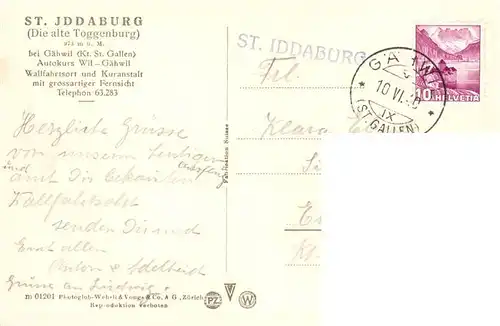 ST. JDDABURG
(Die alte Toggenburg)
bei Gähwil (Kt. St. Gallen)
Autokurs Wil - Gähwil
Wallfahrtsort und Kuranstalt
mit grossartiger Fernsicht
Telephon 63.283
ST. IDDABURG
GÄHWIL
10 VI.
IX
(ST. GALLEN)
10 HELVETIA
Frl.
Klara
Herzliche Grüsse
von unserm heutigen
und Dir bekannten
Wallfahrtsort
senden Dir und
Euch allen
Anton & Adelheid
Grüsse an Ludwig!
Fabrikation Suisse
m 01201 Photoglob-Wehrli & Vouga & Co. A G., Zürich
Reproduktion verboten
PZ V W